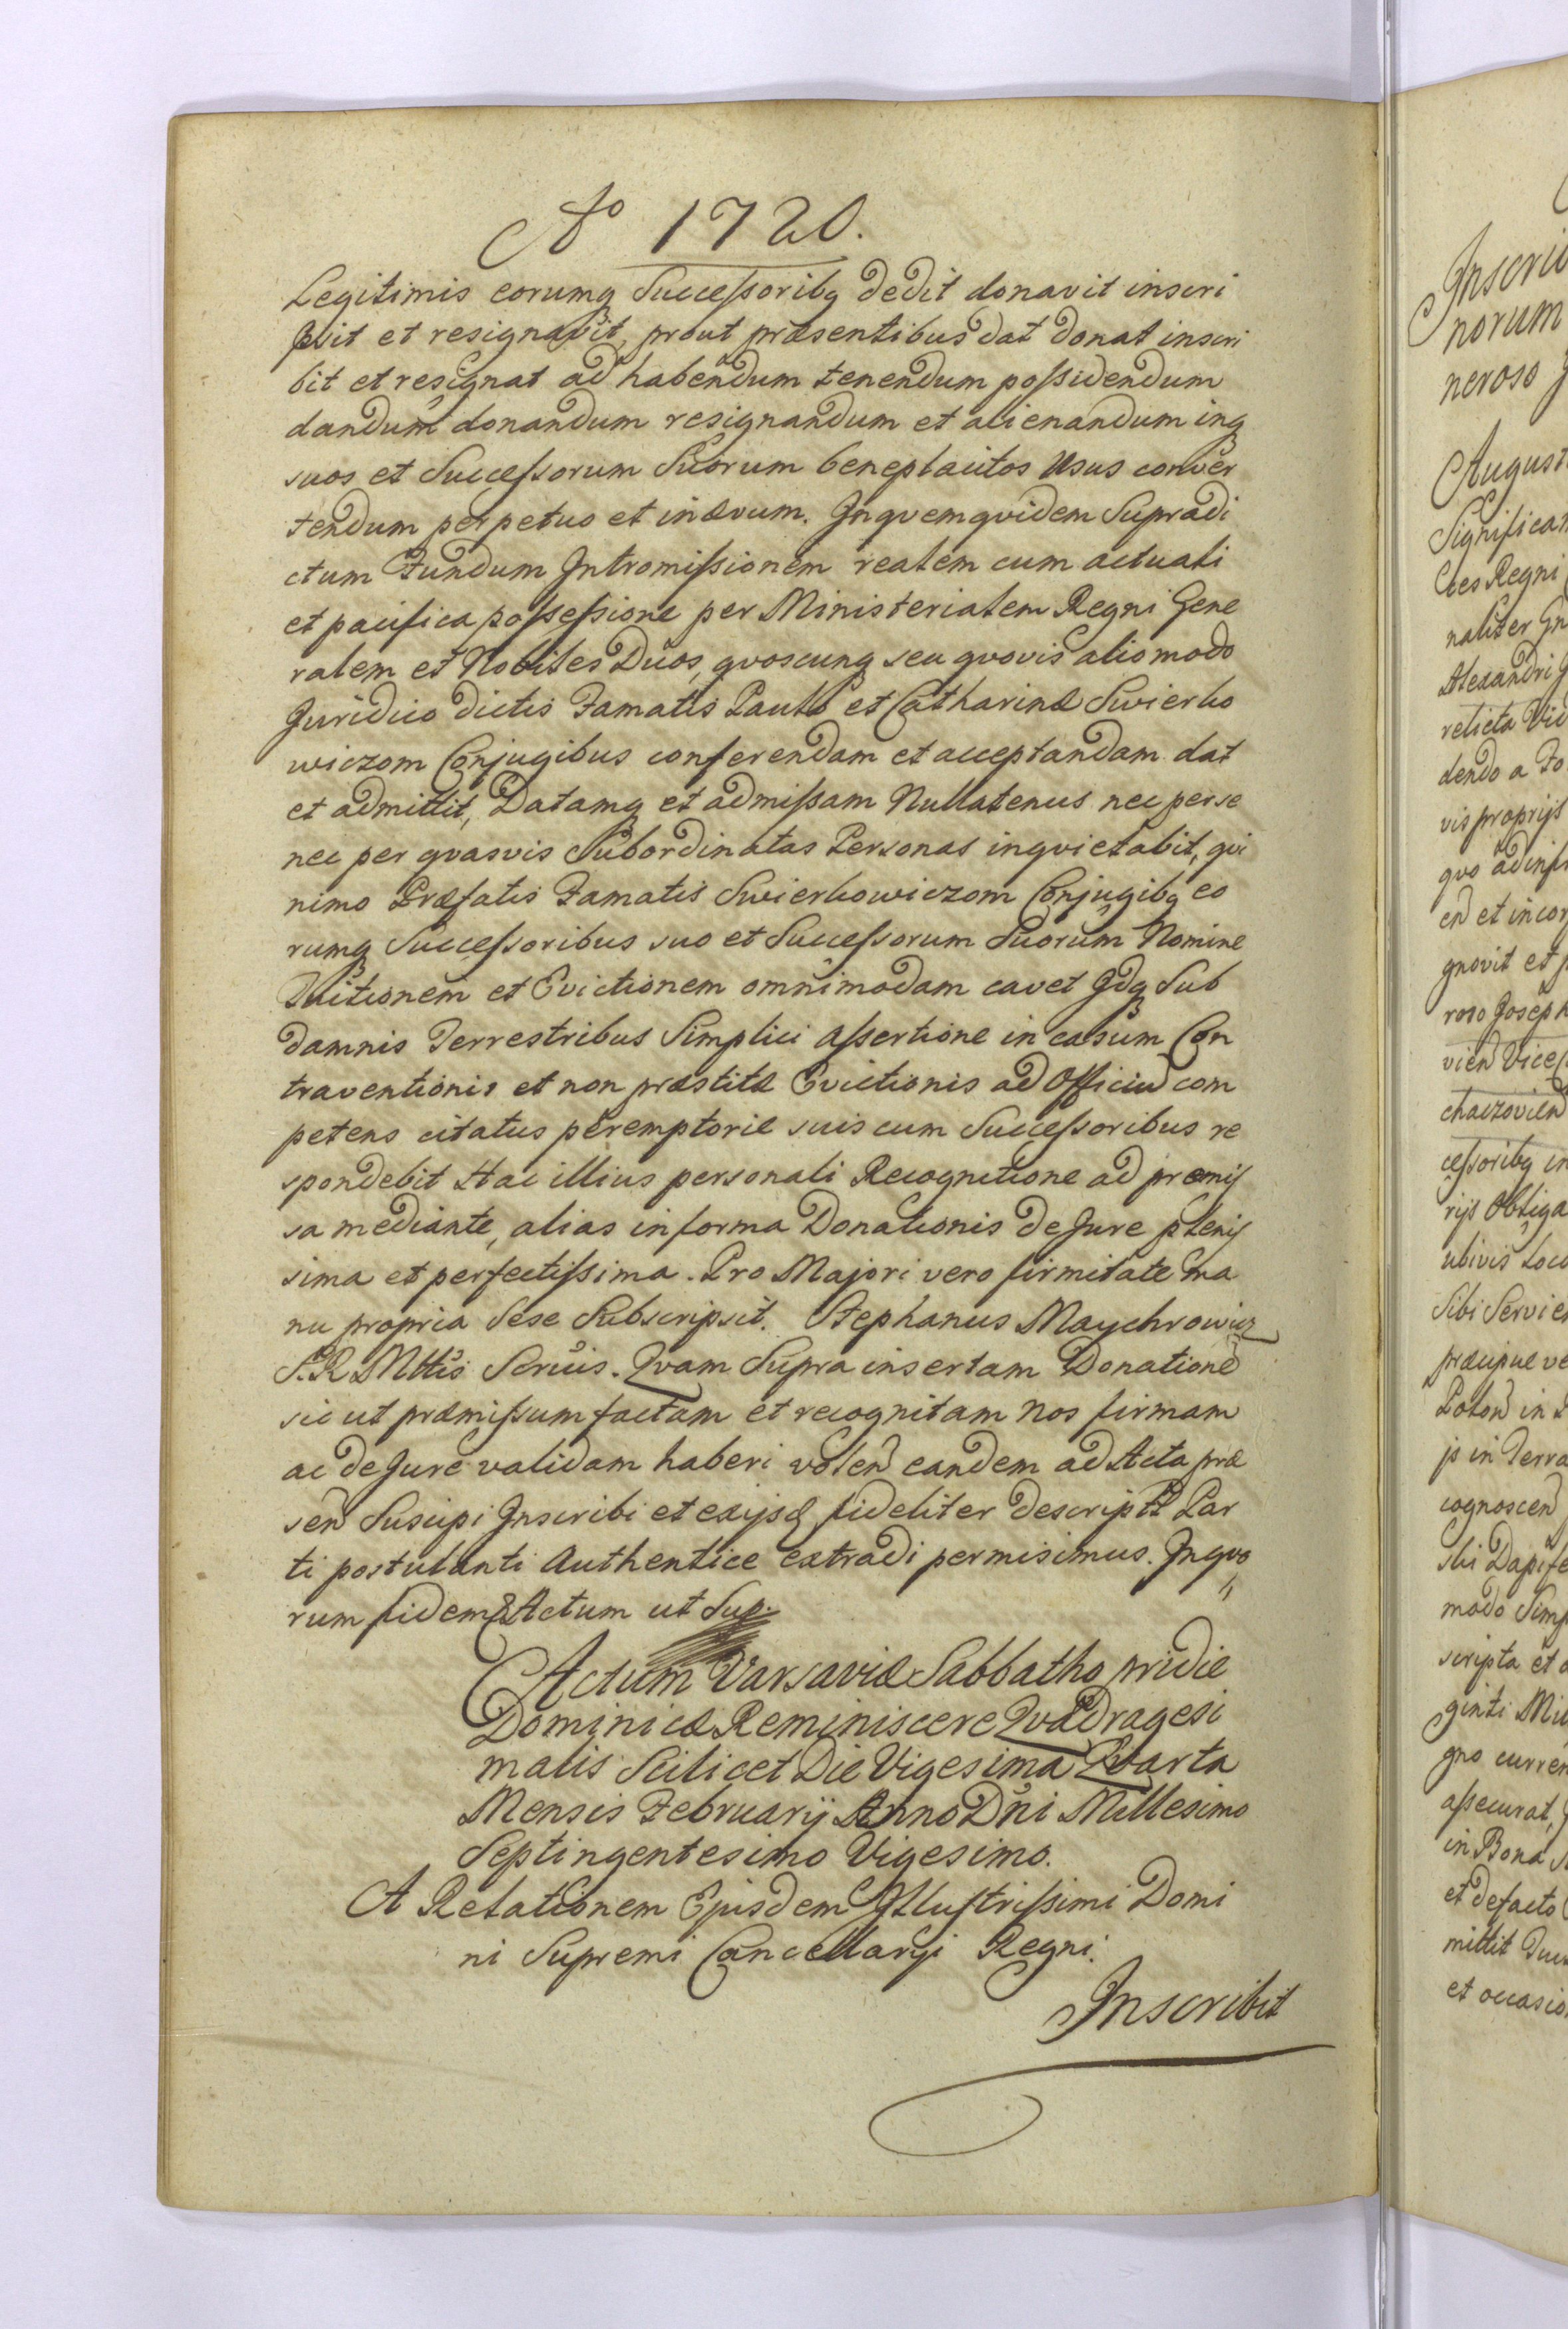 Ao 1720.
Legitimis eorumq Successoribq dedit donavit inscri
psit et resignavit, prout præsentibus dat donat inscri
bit et resignat ad habendum tenendum possidendum
dandum donandum resignandum et alienandum inq
suos et Successorum Suorum beneplacitos Usus conver
tendum perpetuo et inævum. Inqvemqvidem Supradi
ctum Fundum Intromissionem realem cum actuali
et pacifica possessione per Ministerialem Regni Gene
ralem et Nobiles Duos, qvoscunq seu qvovis alio modo
Juridico dictis Famatis Paulo et Catharinæ Swierko
wiczom Conjugibus conferendam et acceptandam dat
et admittit, Datamq et admissam Nullatenus nec per se
nec per qvasvis Subordinatas Personas inqvietabit, qvi
nimo Præfatis Famatis Swierkowiczom Conjugibq eo
rumq Successoribus suo et Successorum Suorum Nomine
Tuitionem et Evictionem omnimodam cavet Idq Sub
damnis Terrestribus Simplici assertione in casum Con
traventionis et non præstitæ Evictionis ad Officiu com
petens citatus peremptorie suis cum Successoribus re
spondebit Hac illius personali Recognitione ad præmis
sa mediante, alias in forma Donationis de Jure plenis
sima et perfectissima. Pro Majori vero firmitate ma
nu propria Sese Subscripsit. Stephanus Maychrowicz
S.R Mttis Scruis. Qvam Supra insertam Donatione
sic ut præmissum factam et recognitam Nos firmam
ac de Jure validam haberi volen eandem ad Acta præ
sen Suscipi Inscribi et exijsq fideliter descriptã Par
ti postulanti Authentice extradi permisimus. Inqvo
rum fidem & Actum ut Sup.
Actum Varsaviæ Sabbatho pridie
Dominicæ Reminiscere Qvadragesi
malis Scilicet Die Vigesima Qvarta
Mensis Februarij Anno Dni Millesimo
Septingentesimo Vigesimo.
A Relationem Ejusdem Illustrissimi Domi
ni Supremi Cancellarij Regni.
Inscribit
norum
neroso
Regni
Alexandri
relicta
dendo a
vis proprijs
gnovit et
ubivis Loco
præcipue
cognoscen
modo
scripta et
ginti
assecurat,
in Bona
et de facto
mittit